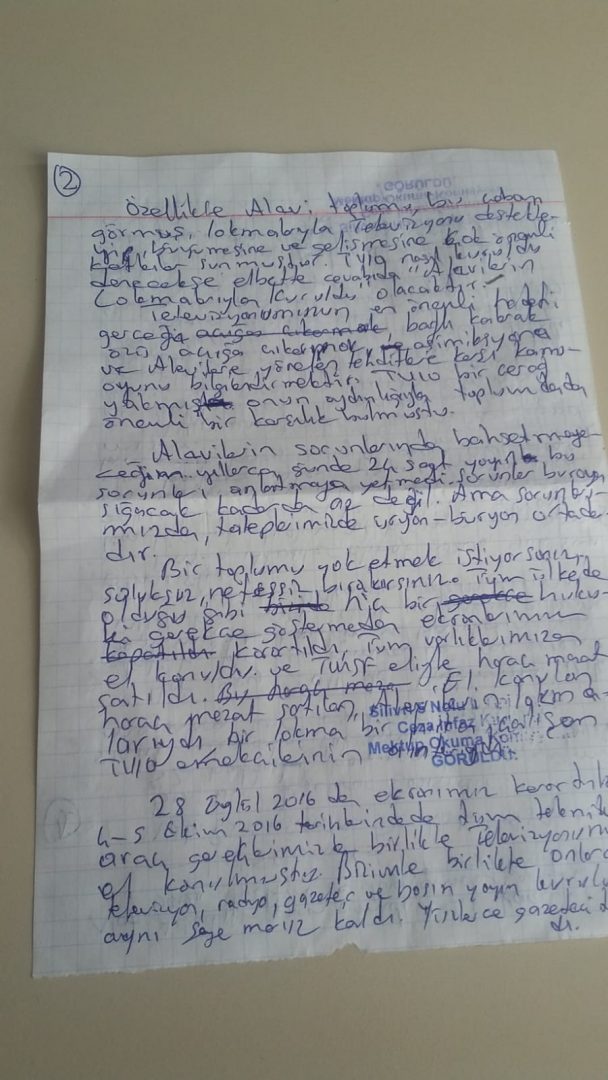 2
GÖRÜLDÜ
Özellikle Alavi toplumu, bu çabayı
görmüş, lokmalarıyla Televizyonu destekle-
yip, büyümesine ve gelişmesine çok önemli
katkılar sunmuştur. TV10 nasıl kuruldu
denecekse elbette cevabıda "Alavilerin
Lokmalarıyla kuruldu" olacaktır.
Televizyonumuzun en önemli hedefi
gerçeği açığa çıkarmak başlı kalarak
özü açığa çıkarmak ve asimilasyona
ve Alavilere yönelen tehditlere karşı kamu-
oyunu bilgilendirmektir. TV10 bir çerağ
yakmış onun aydınlığıyla toplumdada
önemli bir karşılık bulmuştu.
Alavilerin sorunlarından bahsetmeye-
ceğim yıllarca günde 24 saat yayın bu
sorunları anlatmaya yetmedi sorunlar buraya
sığacak kadarda az değil. Ama sorunla-
mızda, taleplerimizde uryan-büryan ortada-
dır.
Bir toplumu yok etmek istiyorsanız,
salyksuz, nefessiz bırakırsınız. Tüm ülkede
olduğu gibi hiç bir gerekçe huku-
ki gerekçe göstermeden ekranlarımız
kapatıldı karartıldı, Tüm varlıklarımıza
el konuldu. ve TMSF eliyle haraç mezat
satıldı. Bu haraç meza El konulan
haraç mezat satılan, Alavilerin lokma-
larıydı bir lokma bir için çalışan
TV10 emekçilerinin
Silivri Nolu
Ceza İnfaz
Mektup Okuma
GÖRÜLDÜ.
28 Eylül 2016 da ekranımız karardık
4-5 Ekim 2016 tarihlerindede tüm teknik
araç gereçlerimizle birlikte Televizyonumu
el konulmuştu. Bizimle birlikte onlarca
televizyon, radyo, gazete, ve basın yayın kurulu
aynı şeye maruz kaldı. Yüzlerce gazeteci
dı.